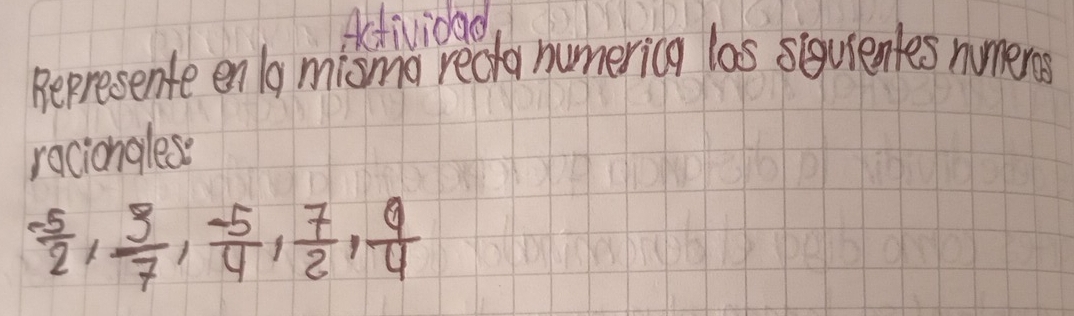 Actividad
Represente en la misma recta numerica los siguientes numeros
racionales:
-5/2, 3/7, -5/4, 7/2, 9/4